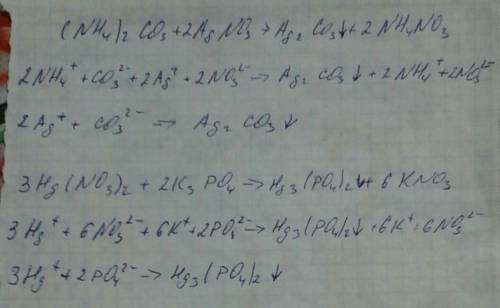 (NH₄)₂ CO₃ + 2Ag NO₃ → Ag₂ CO₃↓ + 2 NH₄NO₃
2NH₄⁺ + CO₃²⁻ + 2Ag⁺ + 2NO₃⁻ → Ag₂ CO₃↓ + 2NH₄⁺ + 2NO₃⁻
2Ag⁺ + CO₃²⁻ → Ag₂ CO₃↓
3Hg(NO₃)₂ + 2K₃ PO₄ → Hg₃(PO₄)₂↓ + 6 KNO₃
3Hg⁺ + 6NO₃²⁻ + 6K⁺ + 2PO₄²⁻ → Hg₃(PO₄)₂↓ + 6K⁺ + 6NO₃²⁻
3Hg⁺ + 2PO₄²⁻ → Hg₃(PO₄)₂↓